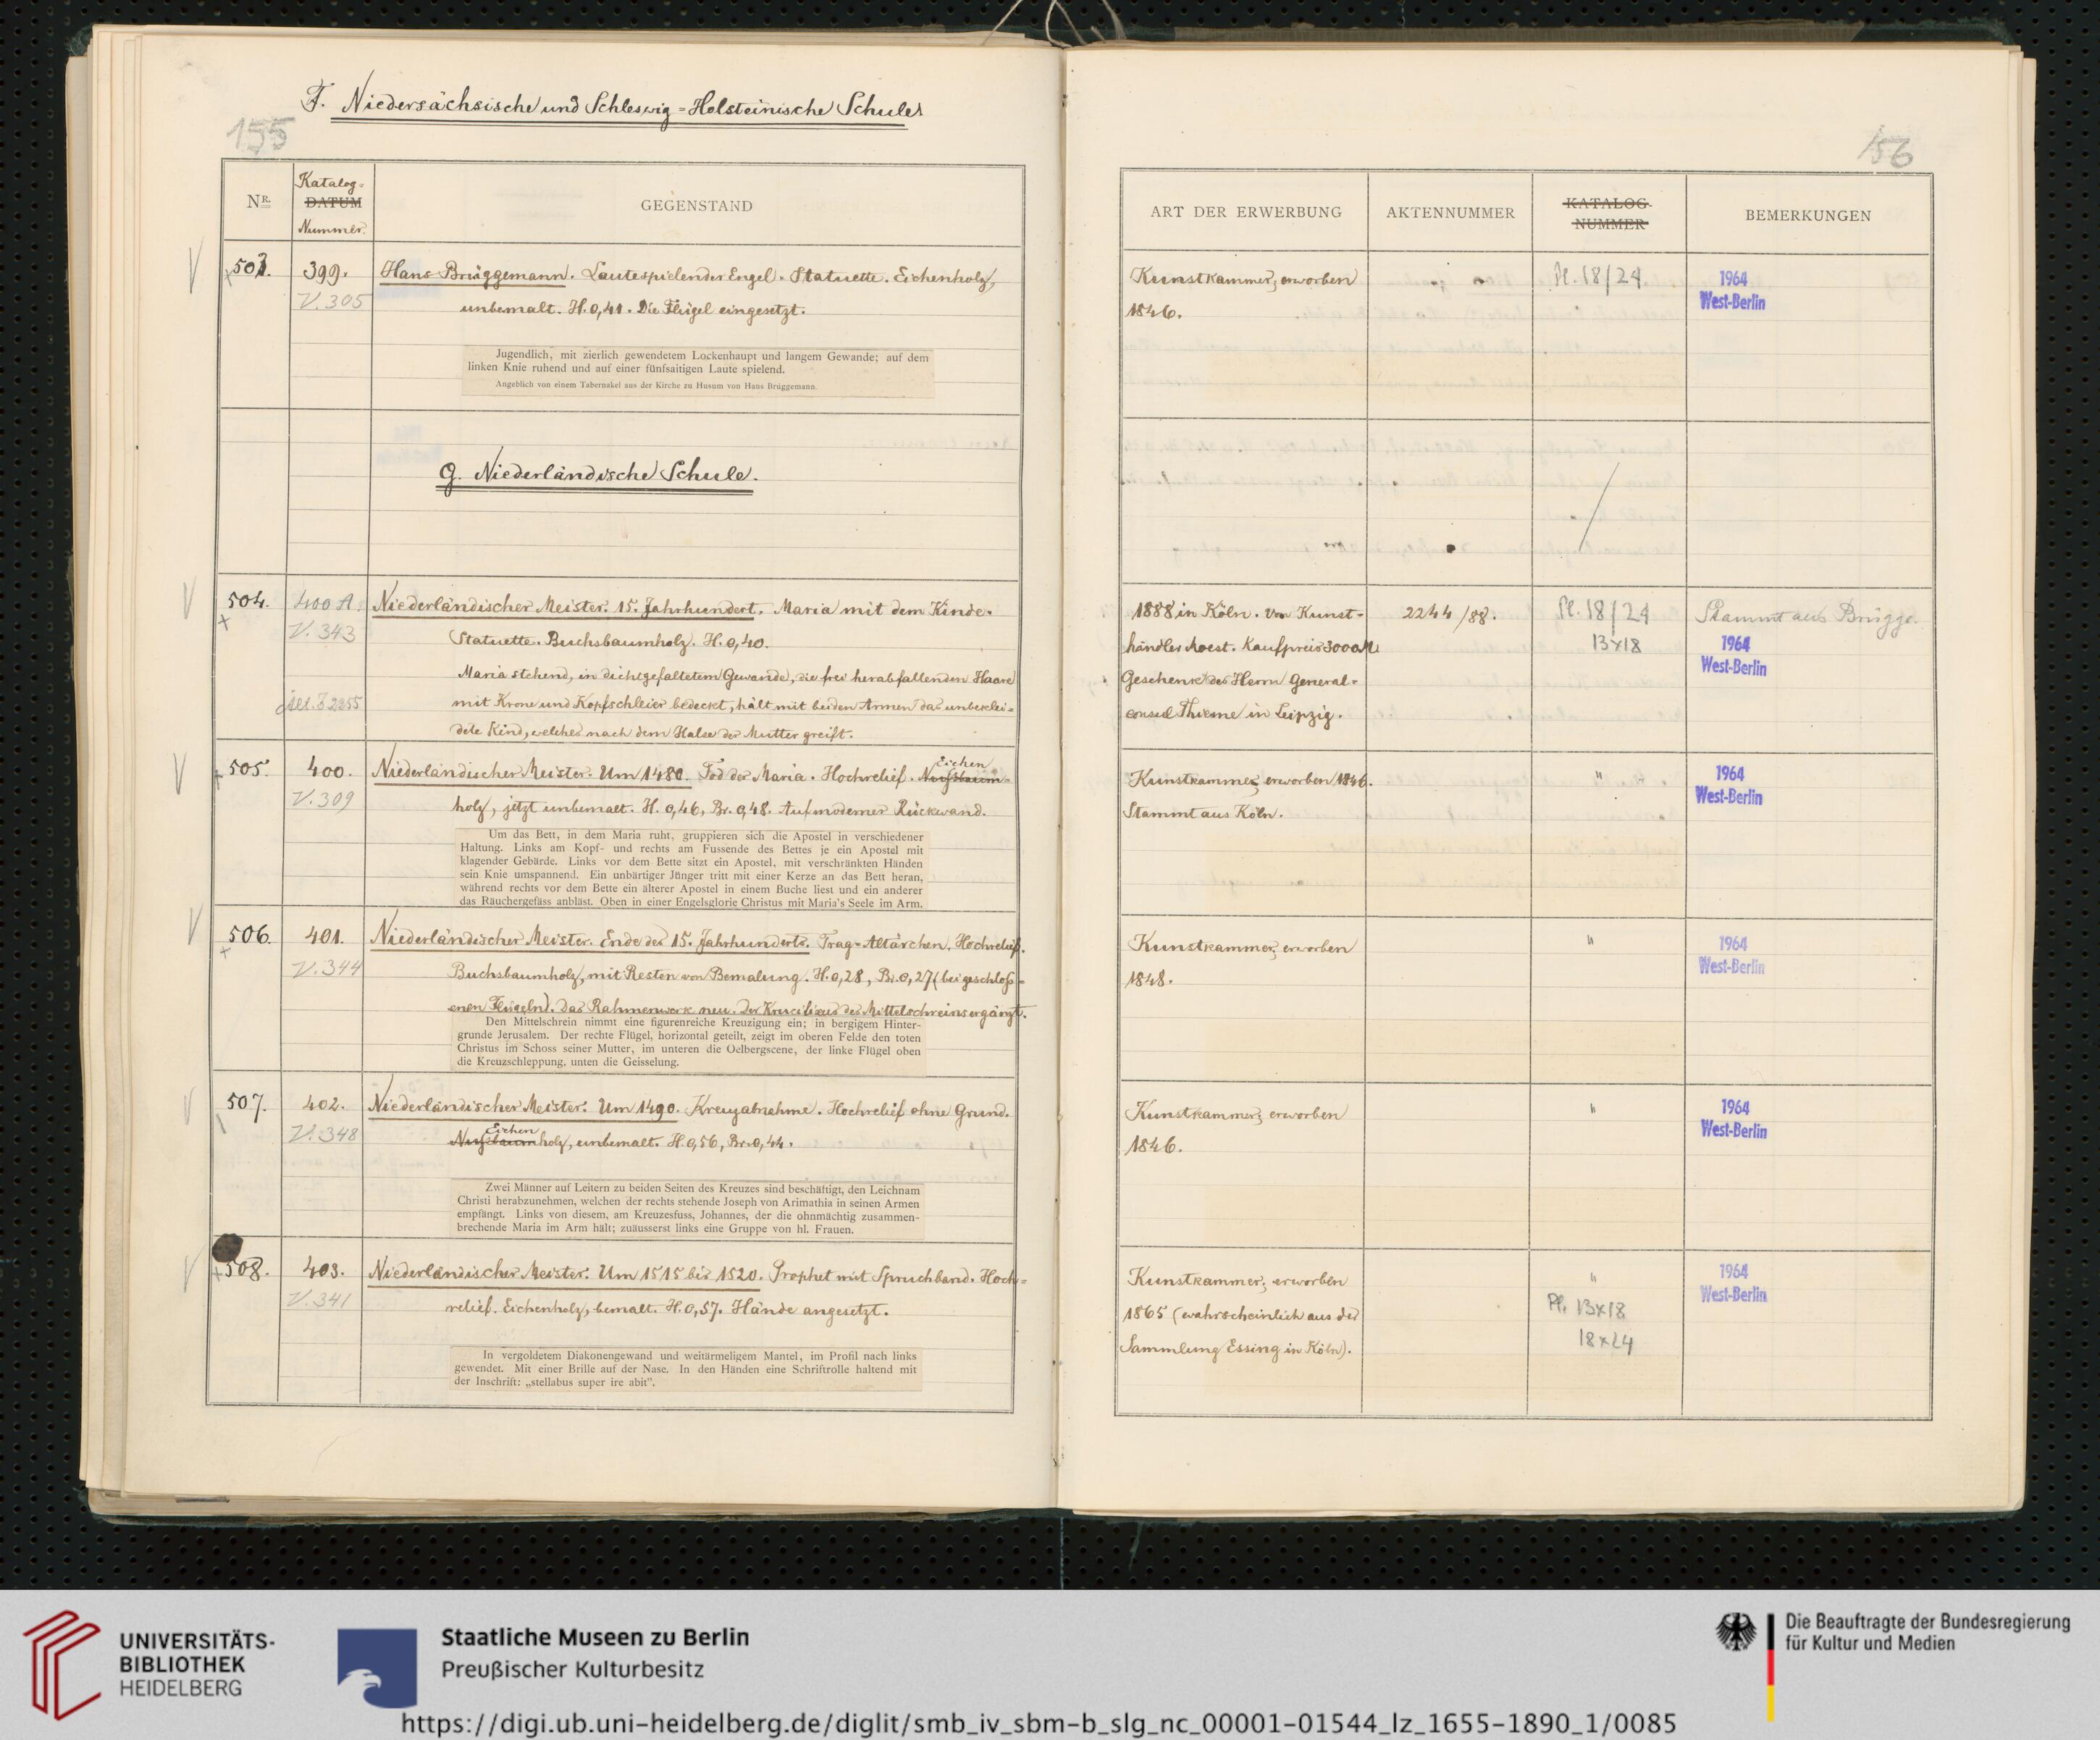 F. Niedersächsische und Schleswig-Holsteinische Schule.
155
156
NR.
Katalog-
DATUM
Nummer.
GEGENSTAND
ART DER ERWERBUNG
AKTENNUMMER
KATALOG-
NUMMER
BEMERKUNGEN
503.
399.
V. 305
Hans Brüggemann. Lautespielender Engel. Statuette. Eichenholz,
unbemalt. H. 0,41. Die Flügel eingesetzt.
Jugendlich, mit zierlich gewendetem Lockenhaupt und langem Gewande; auf dem
linken Knie ruhend und auf einer fünfsaitigen Laute spielend.
Angeblich von einem Tabernakel aus der Kirche zu Husum von Hans Brüggemann.
Kunstkammer, erworben
1846.
Pl. 18/24
1964
West-Berlin
G. Niederländische Schule.
504.
400 A.
V. 343
Niederländischer Meister. 15. Jahrhundert. Maria mit dem Kinde.
Statuette. Buchsbaumholz. H. 0,40.
Maria stehend, in dichtgefaltetem Gewande, die frei herabfallenden Haare
mit Krone und Kopfschleier bedeckt, hält mit beiden Armen das unbeklei-
dete Kind, welches nach dem Halse der Mutter greift.
1888 in Köln. Von Kunst-
händler Moest. Kaufpreis 3000 M
Geschenk des Herrn General-
consul Thieme in Leipzig.
2244/88.
Pl. 18/24
13x18
Stammt aus Brügge.
1964
West-Berlin
505.
400.
V. 309
Niederländischer Meister. Um 1480. Tod der Maria. Hochrelief. Nußbaum-
Eichen
holz, jetzt unbemalt. H. 0,46, Br. 0,48. Auf moderner Rückwand.
Um das Bett, in dem Maria ruht, gruppieren sich die Apostel in verschiedener
Haltung. Links am Kopf- und rechts am Fussende des Bettes je ein Apostel mit
klagender Gebärde. Links vor dem Bette sitzt ein Apostel, mit verschränkten Händen
sein Knie umspannend. Ein unbärtiger Jünger tritt mit einer Kerze an das Bett heran,
während rechts vor dem Bette ein älterer Apostel in einem Buche liest und ein anderer
das Räuchergefäss anbläst. Oben in einer Engelsglorie Christus mit Maria's Seele im Arm.
Kunstkammer, erworben 1846.
Stammt aus Köln.
"
1964
West-Berlin
506.
401.
V. 344
Niederländischer Meister. Ende des 15. Jahrhunderts. Trag-Altärchen. Hochrelief.
Buchsbaumholz, mit Resten von Bemalung. H. 0,28, Br. 0,27 (bei geschloß-
enen Flügeln). Das Rahmenwerk neu. Der Krucifixus des Mittelschreins ergänzt.
Den Mittelschrein nimmt eine figurenreiche Kreuzigung ein; in bergigem Hinter-
grunde Jerusalem. Der rechte Flügel, horizontal geteilt, zeigt im oberen Felde den toten
Christus im Schoss seiner Mutter, im unteren die Oelbergscene, der linke Flügel oben
die Kreuzschleppung, unten die Geisselung.
Kunstkammer, erworben
1848.
"
1964
West-Berlin
507.
402.
V. 348
Niederländischer Meister. Um 1490. Kreuzabnahme. Hochrelief ohne Grund.
Eichen
Nußbaumholz, unbemalt. H. 0,56, Br. 0,44.
Zwei Männer auf Leitern zu beiden Seiten des Kreuzes sind beschäftigt, den Leichnam
Christi herabzunehmen, welchen der rechts stehende Joseph von Arimathia in seinen Armen
empfängt. Links von diesem, am Kreuzesfuss, Johannes, der die ohnmächtig zusammen-
brechende Maria im Arm hält; zuäusserst links eine Gruppe von hl. Frauen.
Kunstkammer, erworben
1846.
"
1964
West-Berlin
508.
403.
V. 341
Niederländischer Meister. Um 1515 bis 1520. Prophet mit Spruchband. Hoch-
relief. Eichenholz, bemalt. H. 0,57. Hände angesetzt.
In vergoldetem Diakonengewand und weitärmeligem Mantel, im Profil nach links
gewendet. Mit einer Brille auf der Nase. In den Händen eine Schriftrolle haltend mit
der Inschrift: „stellabus super ire abit".
Kunstkammer, erworben
1865 (wahrscheinlich aus der
Sammlung Essing in Köln).
"
Pl. 13x18
18x24
1964
West-Berlin
UNIVERSITÄTS-
BIBLIOTHEK
HEIDELBERG
Staatliche Museen zu Berlin
Preußischer Kulturbesitz
Die Beauftragte der Bundesregierung
für Kultur und Medien
https://digi.ub.uni-heidelberg.de/diglit/smb_iv_sbm-b_slg_nc_00001-01544_lz_1655-1890_1/0085